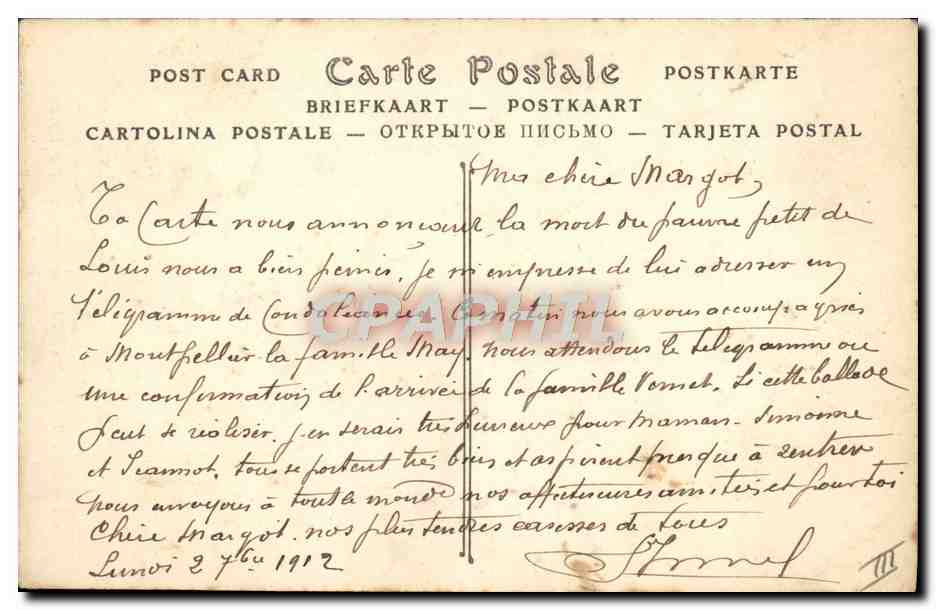 POST CARD Carte Postale POSTKARTE
BRIEFKAART — POSTKAART
CARTOLINA POSTALE — ОТКРЫТОЕ ПИСЬМО — TARJETA POSTAL
Ma chère Margot,
Ta Carte nous annonceant la mort du pauvre petit de
Louis nous a bien peinés, je m'empresse de lui adresser un
télégramme de Condoléances. Ce matin nous avons accompagnés
à Montpellier la famille May. Nous attendons le télégramme ou
une confirmation de l'arrivée de la famille Vernet. Si cette ballade
peut se réaliser, j'en serais très heureux pour maman. Simonne
et Jeannot, tous se portent très bien et aspirent presque à rentrer
Nous envoyons à tout le monde nos affectueuses amitiés et pour toi
Chère Margot nos plus tendres caresses de tous
Lundi 2 7bre 1912
III
CPAPHIL